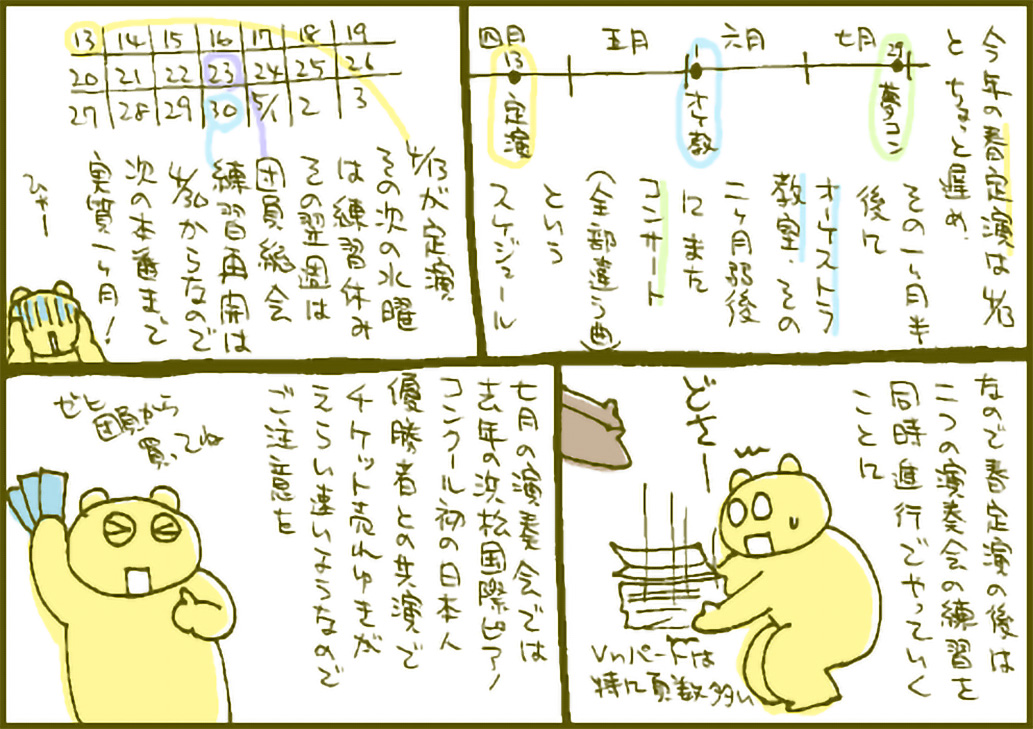 今年の春定演は4/13
とちょっと遅め、
四月
五月
六月
七月
13
1
29
定演
オケ教
夢コン
その一ヶ月半
後に
オーケストラ
教室、その
二ヶ月弱後
にまた
コンサート
(全部違う曲)
という
スケジュール
13 14 15 16 17 18 19
20 21 22 23 24 25 26
27 28 29 30 5/1 2 3
4/13が定演
その次の水曜
は練習休み
その翌週は
団員総会
練習再開は
4/30からなので
次の本番まで
実質一ヶ月!
ひゃー
なので春定演の後は
二つの演奏会の練習を
同時進行でやっていく
ことに
どさー
Vnパートは
特に頁数多い
七月の演奏会では
去年の浜松国際ピアノ
コンクール初の日本人
優勝者との共演で
チケット売れゆきが
えらい速いようなので
ご注意を
ゼヒ団員から
買ってね